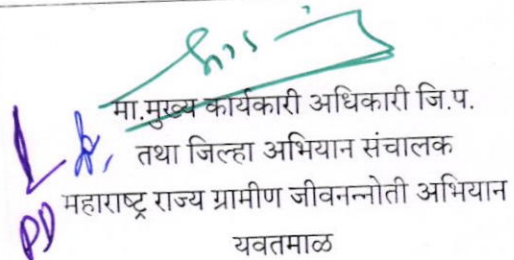 मा.मुख्य कार्यकारी अधिकारी जि.प.
तथा जिल्हा अभियान संचालक
महाराष्ट्र राज्य ग्रामीण जीवनन्नोती अभियान
यवतमाळ
PD